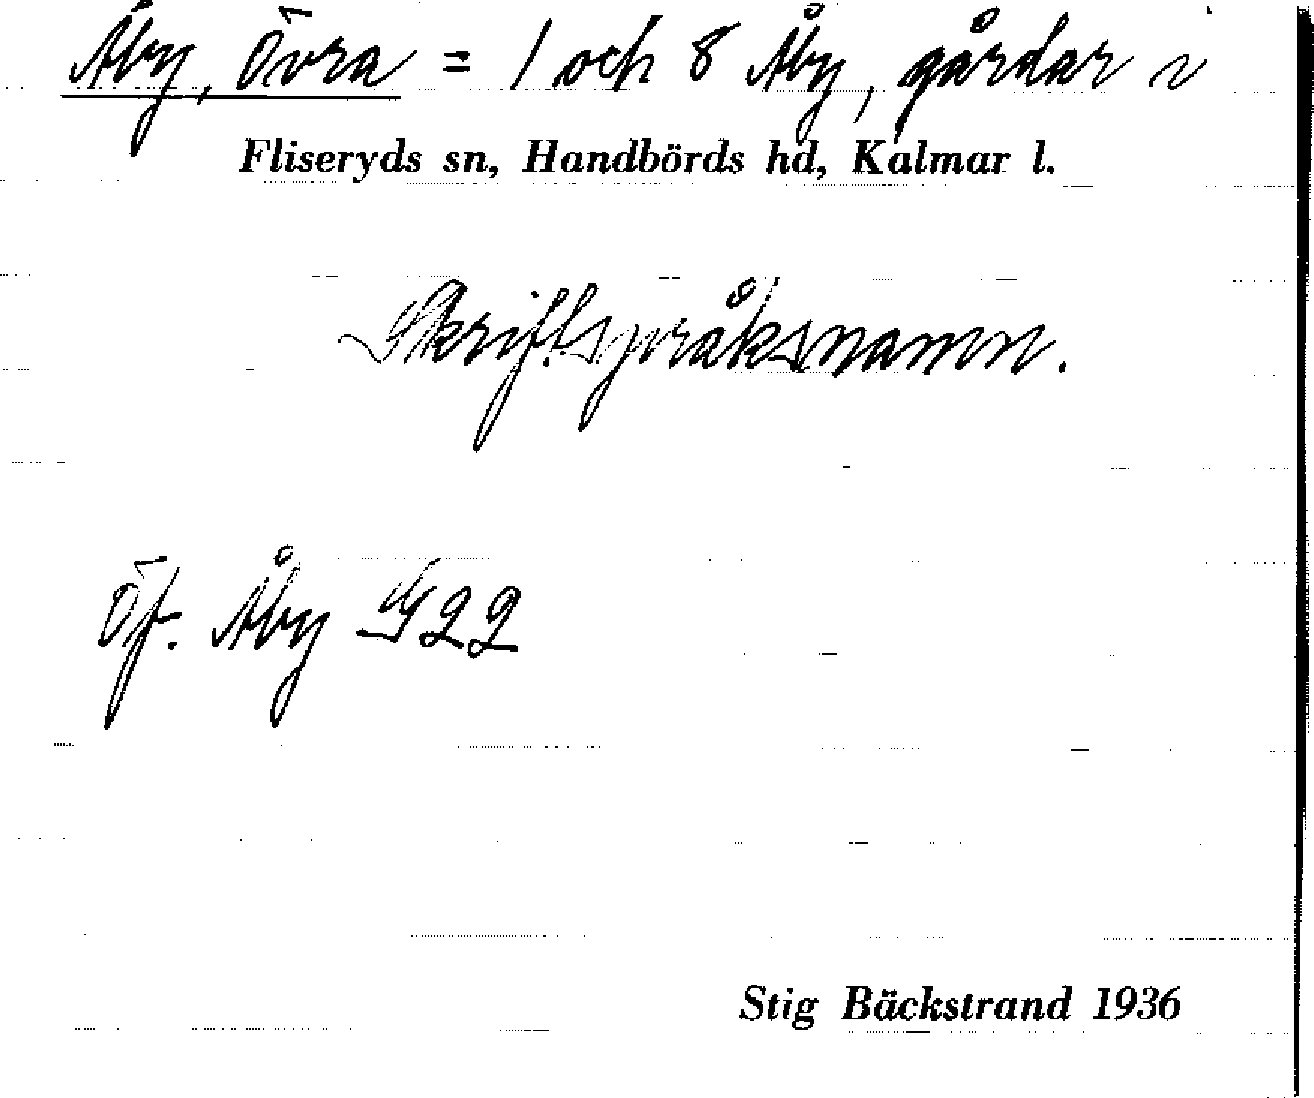 Åby, Övra = 1 och 8 Åby, gårdar i
Fliseryds sn, Handbörds hd, Kalmar l.
Skriftspråksnamn.
Öf. Åby G22
Stig Bäckstrand 1936